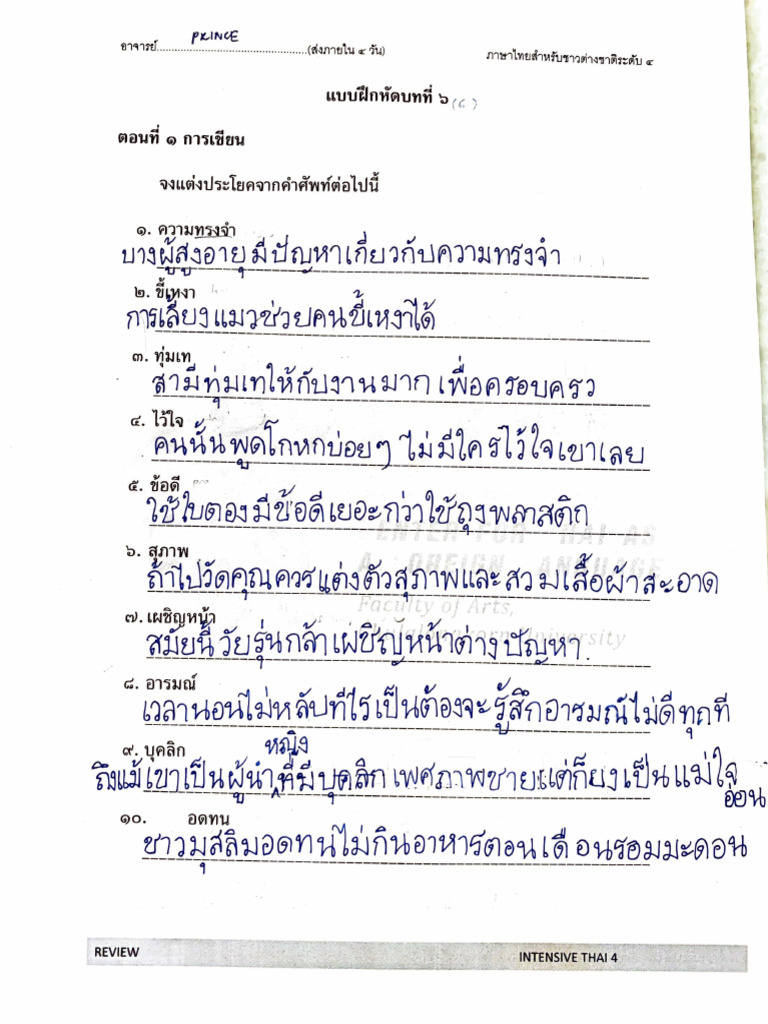 PRINCE
อาจารย์......................................................(ส่งภายใน ๔ วัน)
ภาษาไทยสำหรับชาวต่างชาติระดับ ๔
แบบฝึกหัดบทที่ ๖
ตอนที่ ๑ การเขียน
จงแต่งประโยคจากคำศัพท์ต่อไปนี้
๑. ความทรงจำ
บางผู้สูงอายุมีปัญหาเกี่ยวกับความทรงจำ
๒. ขี้เหงา
การเลี้ยงแมวช่วยคนขี้เหงาได้
๓. ทุ่มเท
สามีทุ่มเทให้กับงานมาก เพื่อครอบครว
๔. ไว้ใจ
คนนั้นพูดโกหกบ่อยๆ ไม่มีใครไว้ใจเขาเลย
๕. ข้อดี
ใช้ใบตองมีข้อดีเยอะกว่าใช้ถุงพลาสติก
๖. สุภาพ
ถ้าไปวัดคุณควรแต่งตัวสุภาพและสวมเสื้อผ้าสะอาด
Faculty of Arts,
๗. เผชิญหน้า
สมัยนี้วัยรุ่นกล้าเผชิญหน้าต่างปัญหา.
๘. อารมณ์
เวลานอนไม่หลับทีไรเป็นต้องจะรู้สึกอารมณ์ไม่ดีทุกที
๙. บุคลิก
หญิง
ถึงแม้เขาเป็นผู้นำที่มีบุคลิกเพศภาพชายแต่ก็ยงเป็นแม่ใจ
อ่อน
๑๐. อดทน
ชาวมุสลิมอดทนไม่กินอาหารตอนเดือนรอมมะดอน
REVIEW
INTENSIVE THAI 4